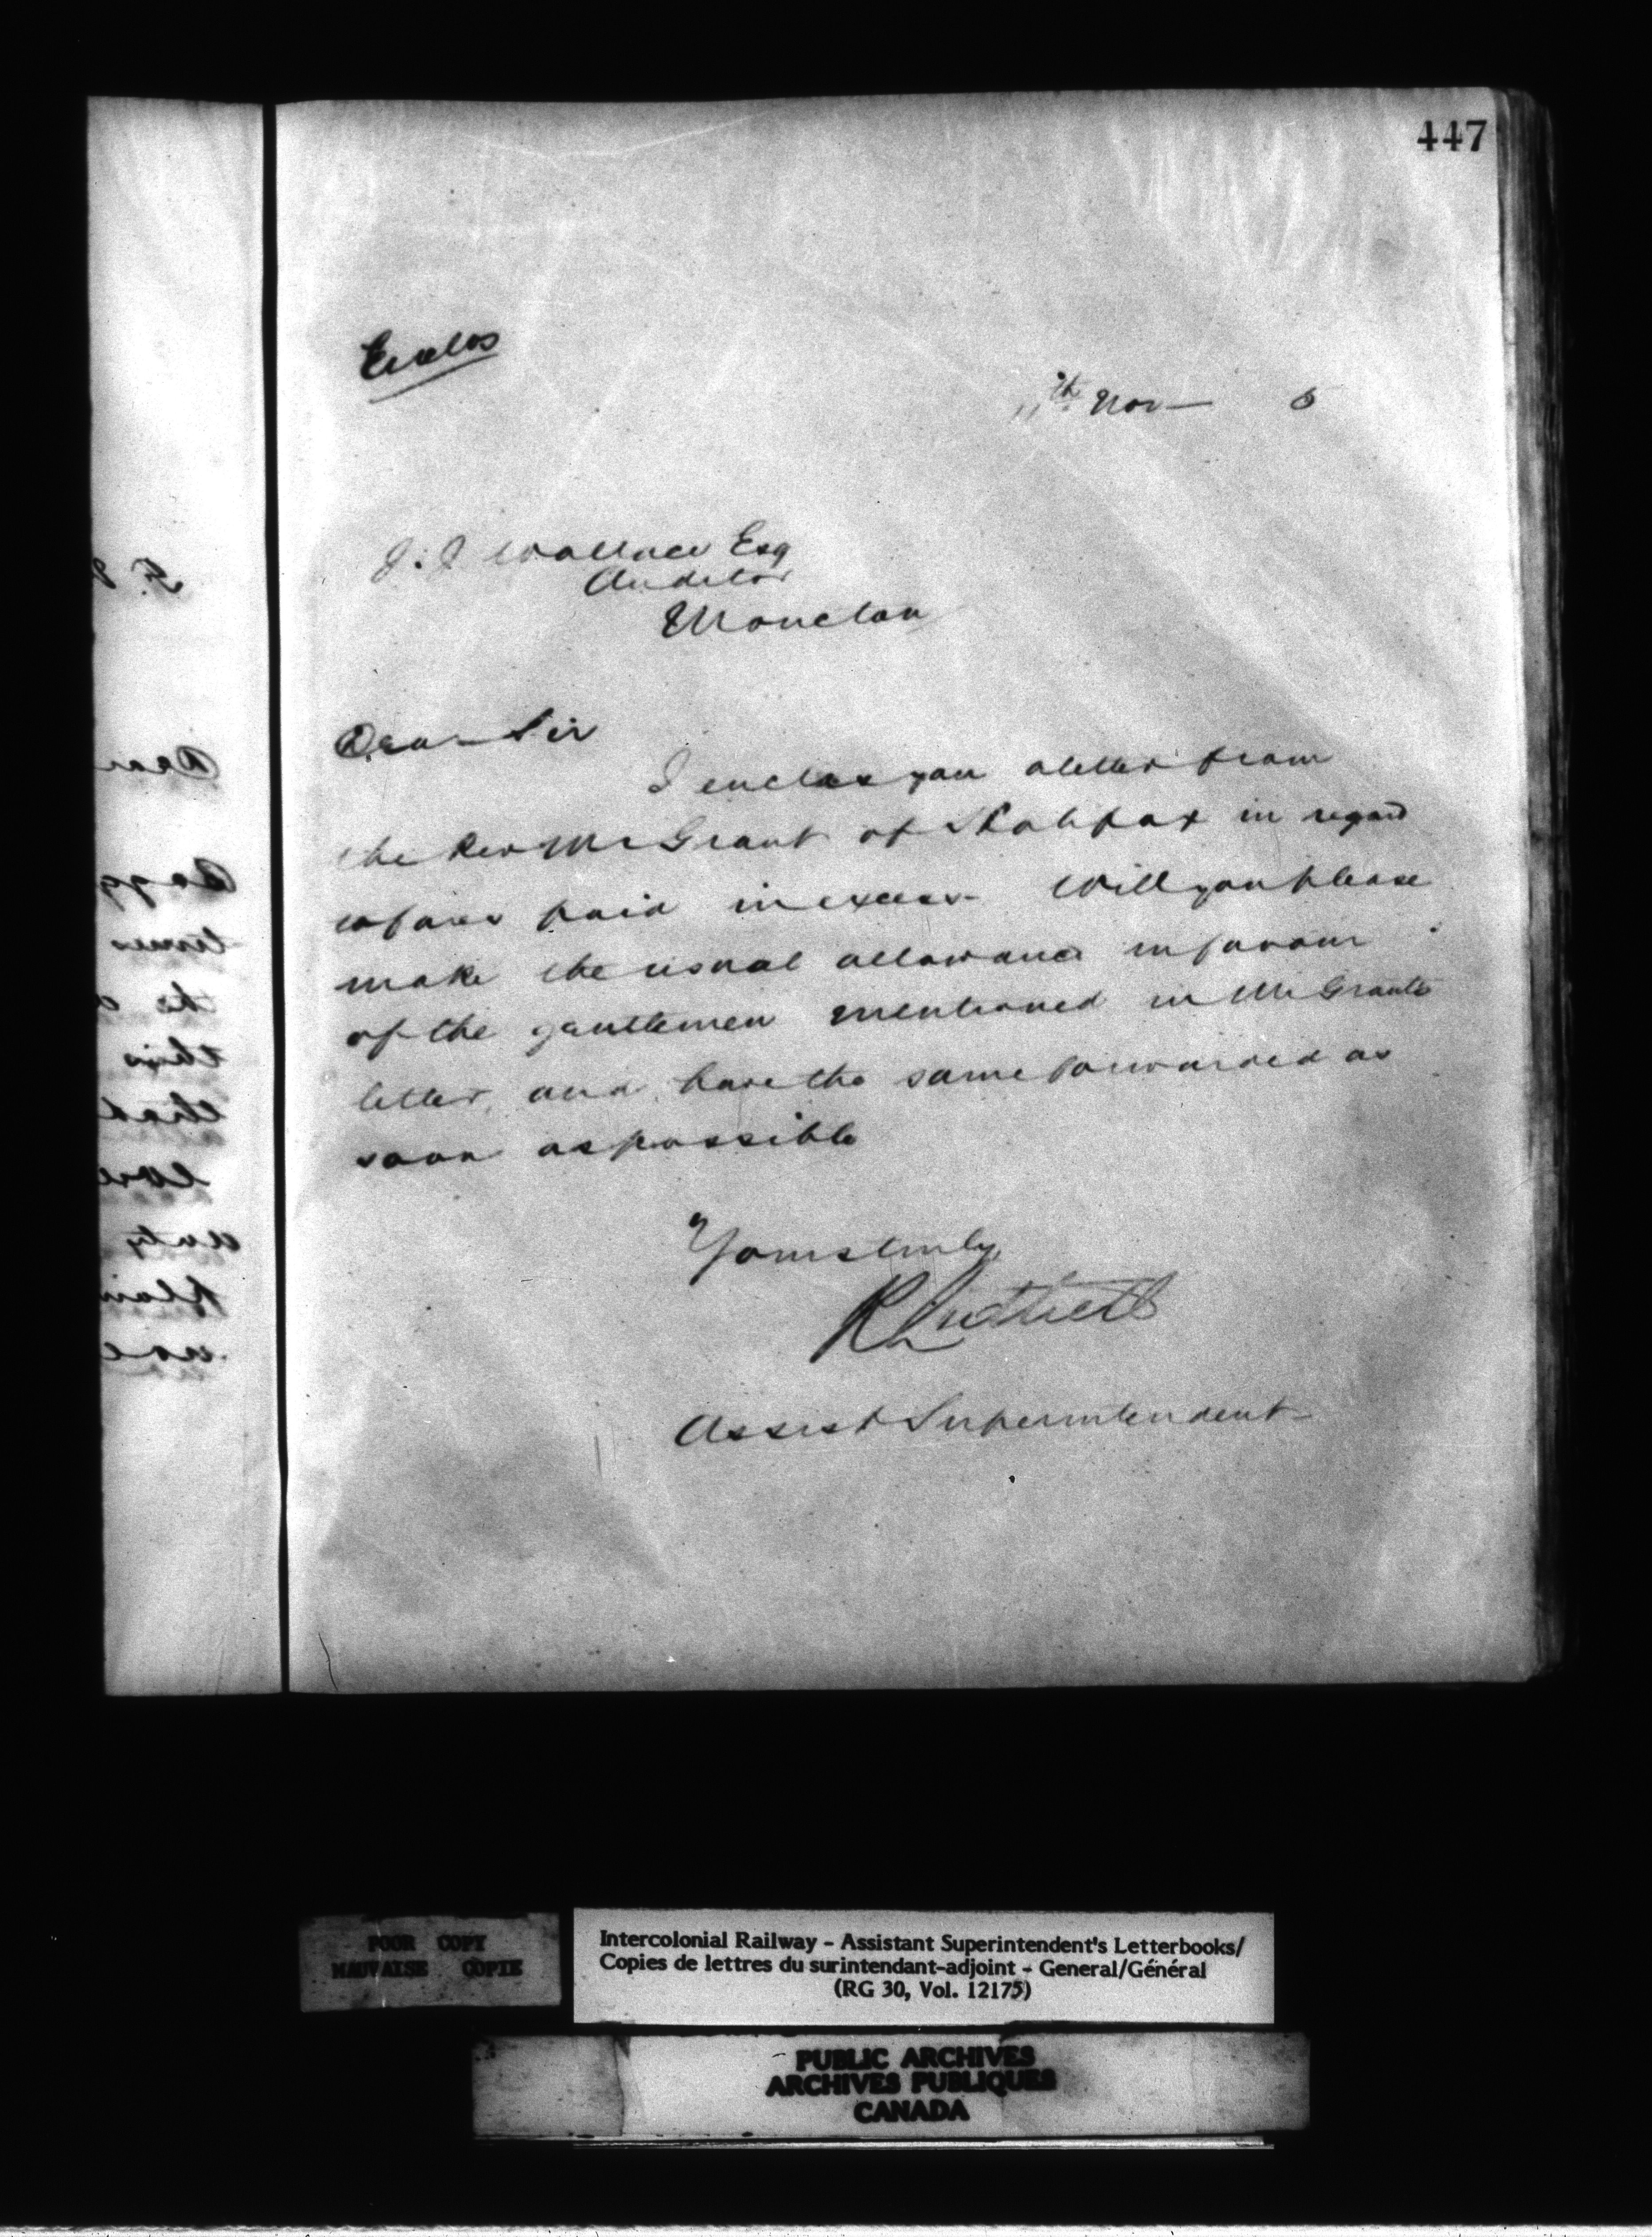 447
Enclos
11th Nov — 5
J. J. Wallace Esq
Auditor
Moncton
Dear Sir
I enclose you a letter from
the Rev Mr Grant of Halifax in regard
to fares paid in excess - Will you please
make the usual allowance in favour
of the gentlemen mentioned in Mr Grants
letter, and have the same forwarded as
soon as possible
Yours truly,
R Luttrell
Assist Superintendent
POOR COPY
MAUVAISE COPIE
Intercolonial Railway - Assistant Superintendent's Letterbooks/
Copies de lettres du surintendant-adjoint - General/Général
(RG 30, Vol. 12175)
PUBLIC ARCHIVES
ARCHIVES PUBLIQUES
CANADA